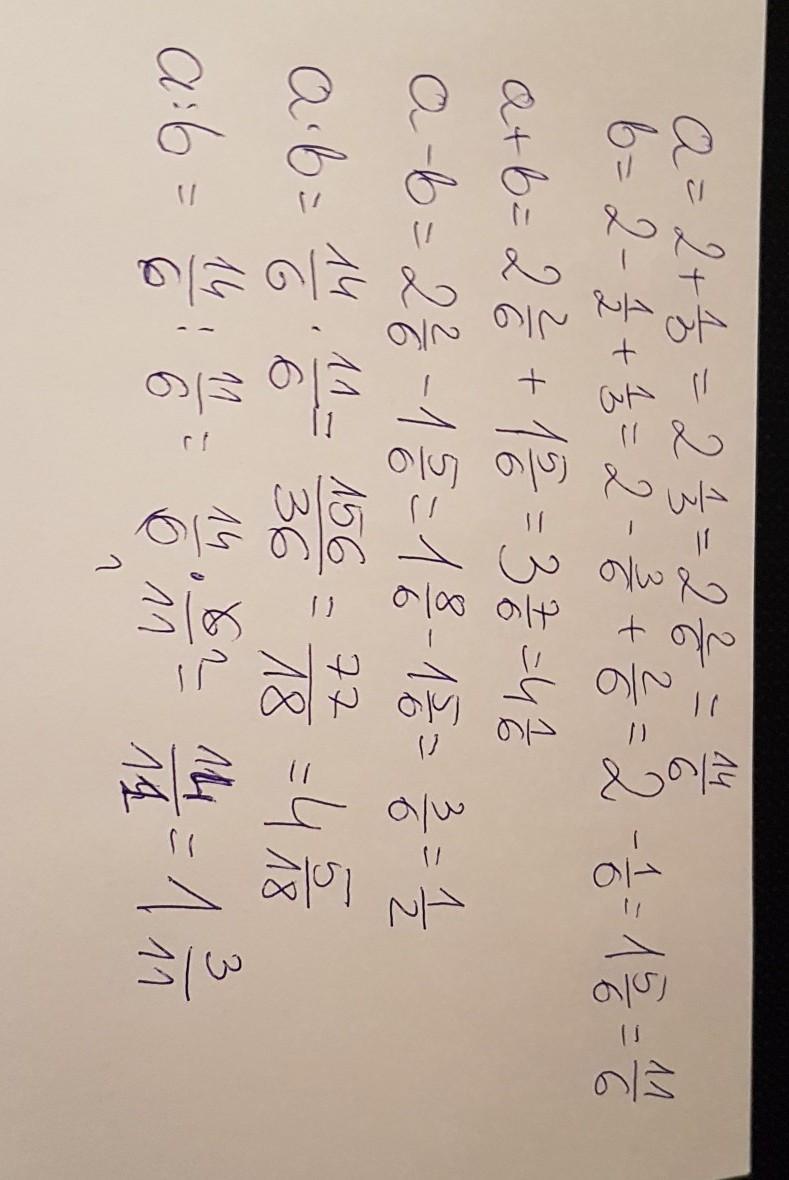 a = 2 + 1/3 = 2 1/3 = 2 2/6 = 14/6
b = 2 - 1/2 + 1/3 = 2 - 3/6 + 2/6 = 2 - 1/6 = 1 5/6 = 11/6
a + b = 2 2/6 + 1 5/6 = 3 7/6 = 4 1/6
a - b = 2 2/6 - 1 5/6 = 1 8/6 - 1 5/6 = 3/6 = 1/2
a · b = 14/6 · 11/6 = 156/36 = 77/18 = 4 5/18
a : b = 14/6 : 11/6 = 14/6 · 6/11 = 14/11 = 1 3/11